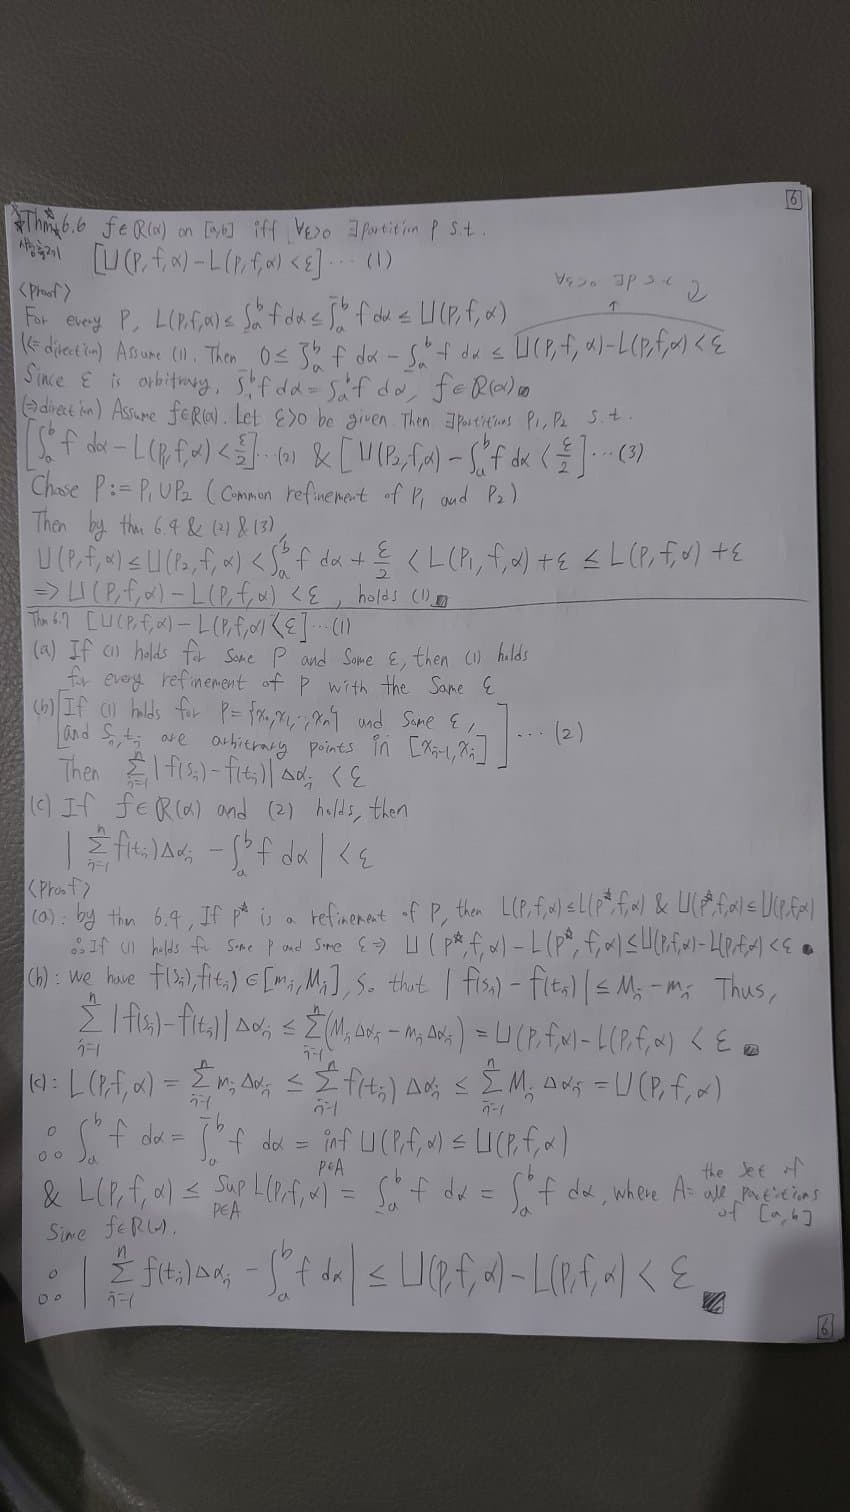 6
Thm 6.6 f∈R(α) on [a,b] iff ∀ε>0 ∃partition P s.t.
[U(P,f,α)-L(P,f,α)<ε] ... (1)
<Proof>
∀ε>0 ∃P s.t
For every P, L(P,f,α) ≤ ∫_a^b f dα ≤ ∫̄_a^b f dα ≤ U(P,f,α)
(⇐ direction) Assume (1). Then 0 ≤ ∫̄_a^b f dα - ∫_a^b f dα ≤ U(P,f,α)-L(P,f,α)<ε
Since ε is arbitrary, ∫̄_a^b f dα = ∫_a^b f dα, f∈R(α)
(⇒direction) Assume f∈R(α). Let ε>0 be given. Then ∃partitions P₁, P₂ s.t.
[∫_a^b f dα - L(P₁,f,α) < ε/2] ... (2) & [U(P₂,f,α) - ∫_a^b f dα < ε/2] ... (3)
Chose P := P₁∪P₂ (Common refinement of P₁ and P₂)
Then by thm 6.4 & (2) & (3),
U(P,f,α) ≤ U(P₂,f,α) < ∫_a^b f dα + ε/2 < L(P₁,f,α)+ε ≤ L(P,f,α)+ε
=> U(P,f,α) - L(P,f,α) < ε, holds (1)
Thm 6.7 [U(P,f,α) - L(P,f,α) < ε] ... (1)
(a) If (1) holds for some P and some ε, then (1) holds
for every refinement of P with the same ε
(b) [If (1) holds for P={x₀,x₁,..,xₙ} and some ε,
and sᵢ,tᵢ are arbitrary points in [xᵢ₋₁,xᵢ]] ... (2)
Then Σ_{i=1}^n |f(sᵢ)-f(tᵢ)| Δαᵢ < ε
(c) If f∈R(α) and (2) holds, then
| Σ_{i=1}^n f(tᵢ)Δαᵢ - ∫_a^b f dα | < ε
<Proof>
(a): by thm 6.4, If P* is a refinement of P, then L(P,f,α)≤L(P*,f,α) & U(P*,f,α)≤U(P,f,α)
∴ If (1) holds for some P and some ε => U(P*,f,α) - L(P*,f,α) ≤ U(P,f,α)-L(P,f,α) < ε
(b): we have f(sᵢ),f(tᵢ)∈[mᵢ,Mᵢ], so that |f(sᵢ) - f(tᵢ)| ≤ Mᵢ - mᵢ Thus,
Σ_{i=1}^n |f(sᵢ)-f(tᵢ)| Δαᵢ ≤ Σ_{i=1}^n (Mᵢ Δαᵢ - mᵢ Δαᵢ) = U(P,f,α) - L(P,f,α) < ε
(c): L(P,f,α) = Σ_{i=1}^n mᵢ Δαᵢ ≤ Σ_{i=1}^n f(tᵢ) Δαᵢ ≤ Σ_{i=1}^n Mᵢ Δαᵢ = U(P,f,α)
∴ ∫_a^b f dα = ∫̄_a^b f dα = inf_{P∈A} U(P,f,α) ≤ U(P,f,α)
& L(P,f,α) ≤ sup_{P∈A} L(P,f,α) = ∫_a^b f dα = ∫_a^b f dα, where A= the set of all partitions of [a,b]
Since f∈R(α).
∴ | Σ_{i=1}^n f(tᵢ)Δαᵢ - ∫_a^b f dα | ≤ U(P,f,α)-L(P,f,α) < ε
6